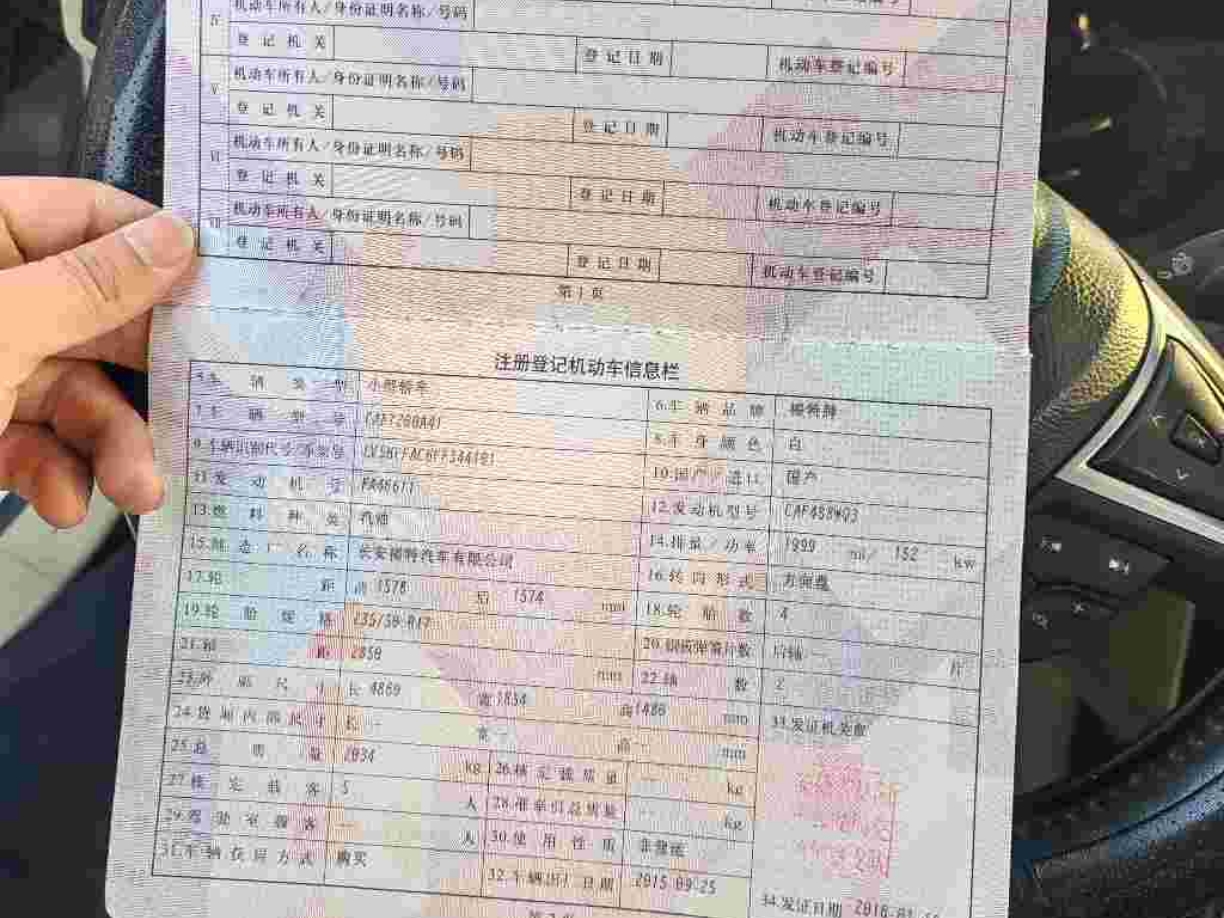 IV 机动车所有人/身份证明名称/号码
登记机关 登记日期 机动车登记编号
V 机动车所有人/身份证明名称/号码
登记机关 登记日期 机动车登记编号
VI 机动车所有人/身份证明名称/号码
登记机关 登记日期 机动车登记编号
VII 机动车所有人/身份证明名称/号码
登记机关 登记日期 机动车登记编号
第1页
注册登记机动车信息栏
5.车辆类型 小型轿车 6.车辆品牌 福特牌
7.车辆型号 8.车身颜色 白
9.车辆识别代号/车架号 10.国产/进口 国产
11.发动机号 12.发动机型号 CAF488WQ3
13.燃料种类 汽油 14.排量/功率 1999 ml/ 152 kw
15.制造厂名称 长安福特汽车有限公司 16.转向形式 方向盘
17.轮距 前 1578 后 1574 mm 18.轮胎数 4
19.轮胎规格 235/50 R17 20.钢板弹簧片数 后轴 -- 片
21.轴距 2850 mm 22.轴数 2
23.外廓尺寸 长 4869 宽 1854 高 1486 mm 33.发证机关章
24.货厢内部尺寸 长 -- 宽 -- 高 -- mm
25.总质量 2034 kg 26.核定载质量 -- kg
27.核定载客 5 人 28.准牵引总质量 -- kg
29.驾驶室载客 -- 人 30.使用性质 非营运
31.车辆获得方式 购买 32.车辆出厂日期 2015-09-25
34.发证日期